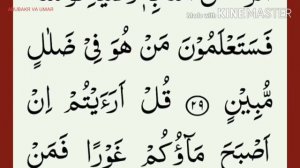 ABUBAKR VA UMAR
Made with KINEMASTER
فَسَتَعْلَمُوْنَ مَنْ هُوَ فِيْ ضَلٰلٍ
مُّبِيْنٍ ٢٩ قُلْ اَرَءَيْتُمْ اِنْ
اَصْبَحَ مَآؤُكُمْ غَوْرًا فَمَنْ